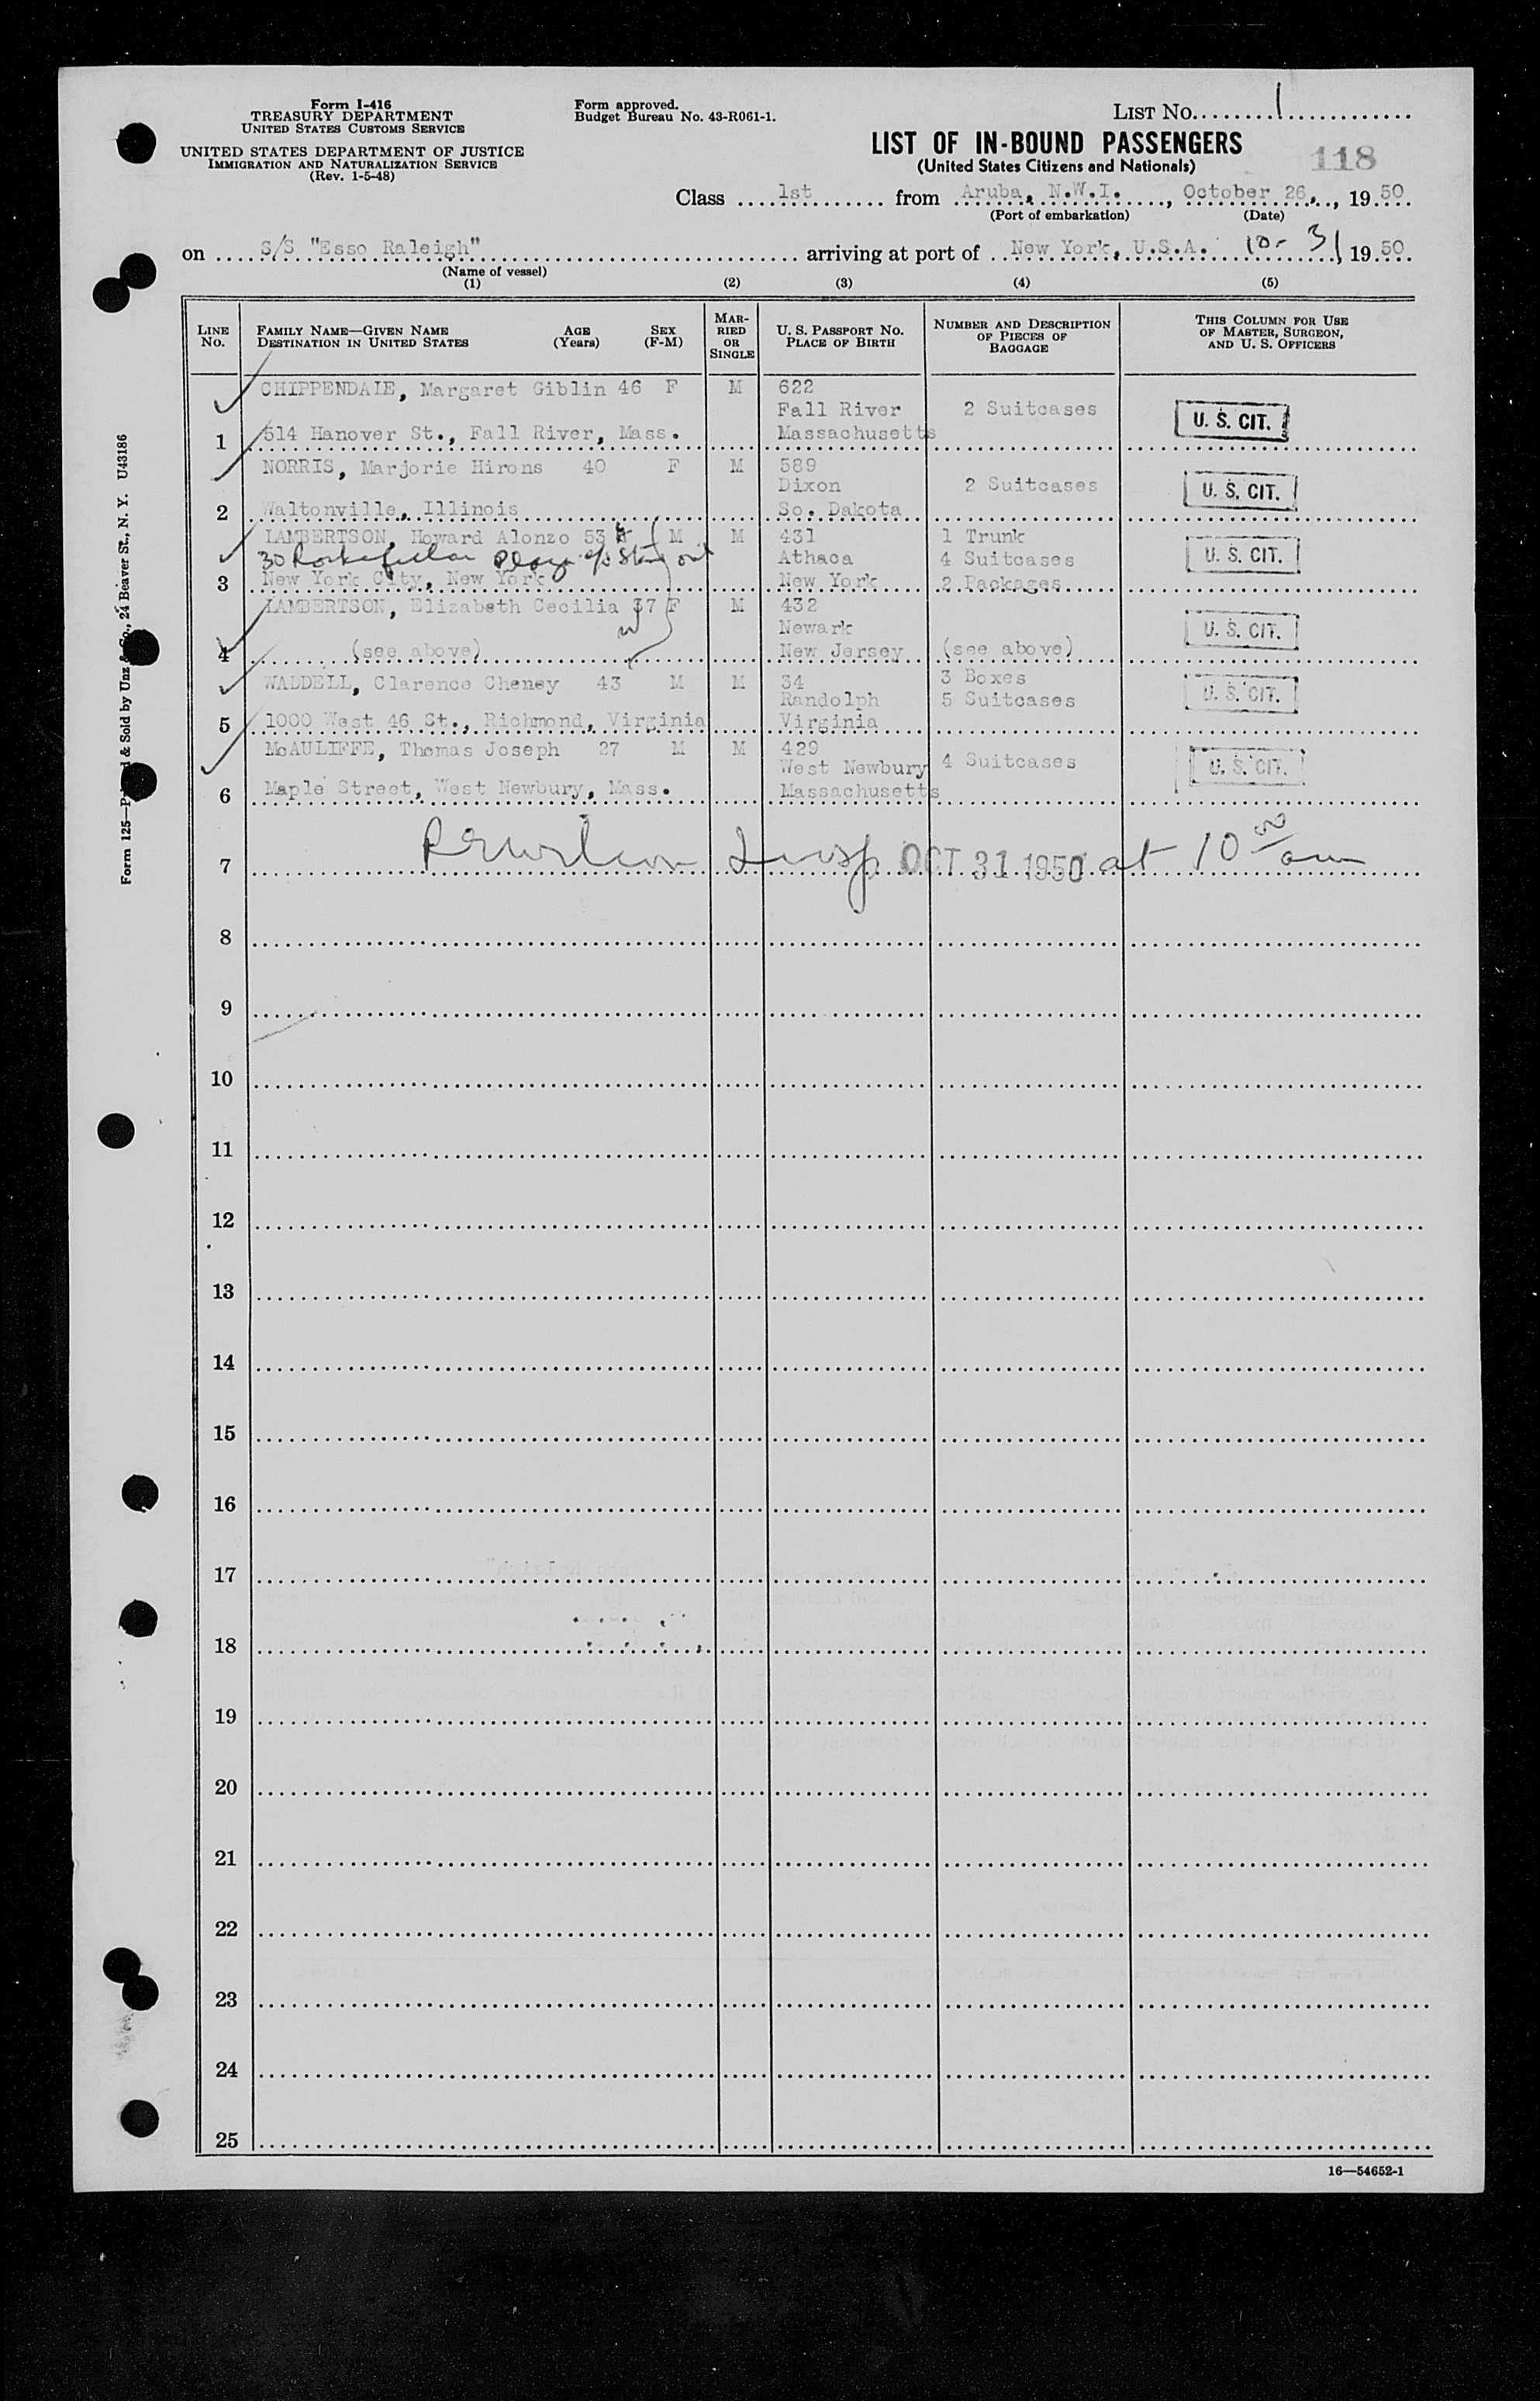 Form I-416
TREASURY DEPARTMENT
UNITED STATES CUSTOMS SERVICE
UNITED STATES DEPARTMENT OF JUSTICE
IMMIGRATION AND NATURALIZATION SERVICE
(Rev. 1-5-48)
Form approved.
Budget Bureau No. 43-R061-1.
LIST No. 1
LIST OF IN-BOUND PASSENGERS
(United States Citizens and Nationals)
118
Class 1st from Aruba, N.W.I., October 26, 1950
(Port of embarkation) (Date)
on S/S "Esso Raleigh" arriving at port of New York, U.S.A. 10-31, 1950
(Name of vessel)
(1) (2) (3) (4) (5)
LINE No.
FAMILY NAME—GIVEN NAME AGE (Years) SEX (F-M)
DESTINATION IN UNITED STATES
MARRIED OR SINGLE
U. S. PASSPORT No.
PLACE OF BIRTH
NUMBER AND DESCRIPTION OF PIECES OF BAGGAGE
THIS COLUMN FOR USE OF MASTER, SURGEON, AND U. S. OFFICERS
CHIPPENDALE, Margaret Giblin 46 F M 622
Fall River 2 Suitcases U. S. CIT.
1 514 Hanover St., Fall River, Mass. Massachusetts
NORRIS, Marjorie Hirons 40 F M 589
Dixon 2 Suitcases U. S. CIT.
2 Waltonville, Illinois So. Dakota
LAMBERTSON, Howard Alonzo 53 M M 431 1 Trunk
30 Rockefeller Plaza c/o Stan oil Athaca 4 Suitcases U. S. CIT.
3 New York City, New York New York 2 Packages
LAMBERTSON, Elizabeth Cecilia 37 F M 432
Newark U. S. CIT.
4 (see above) New Jersey (see above)
WADDELL, Clarence Cheney 43 M M 34 3 Boxes
Randolph 5 Suitcases U. S. CIT.
5 1000 West 46 St., Richmond, Virginia Virginia
McAULIFFE, Thomas Joseph 27 M M 429
West Newbury 4 Suitcases U. S. CIT.
6 Maple Street, West Newbury, Mass. Massachusetts
7 Insp OCT 31 1950 at 10 00 am
8
9
10
11
12
13
14
15
16
17
18
19
20
21
22
23
24
25
16—54652-1
Form 125—P & Sold by Unz & Co., 24 Beaver St., N. Y. U43186